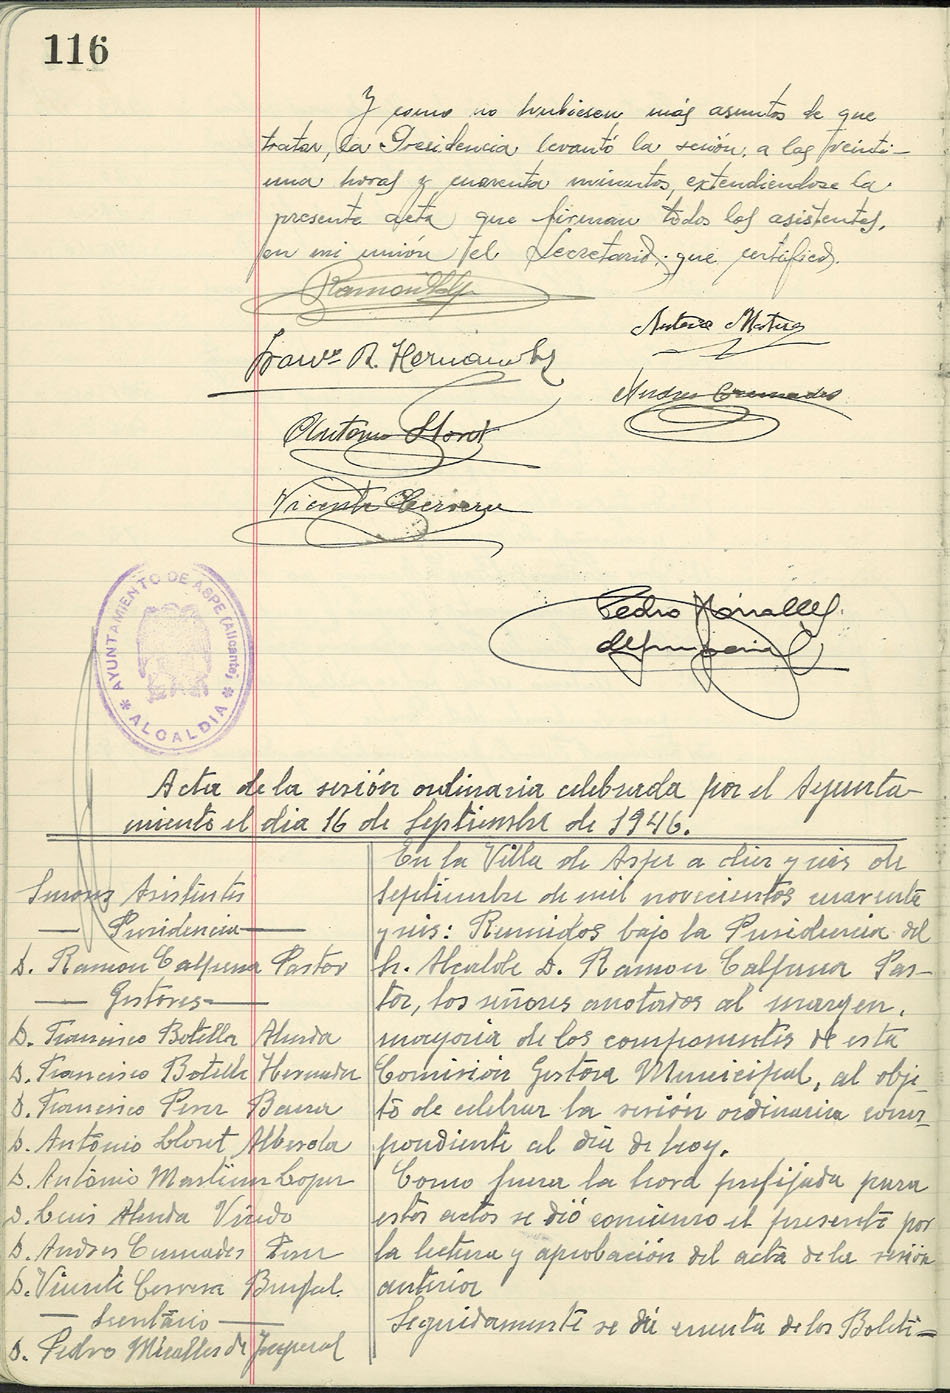 116
Y como no hubiesen más asuntos de que
tratar, la Presidencia levantó la sesión, a las veinti-
una horas y cuarenta minutos, extendiendose la
presente acta que firman todos los asistentes,
en mi unión el Secretario, que certifico.
Ramon
Antonio Martinez
Franco B. Hernandez
Andres Cremades
Antonio Lloret
Vicente Cervera
Pedro Miralles
AYUNTAMIENTO DE ASPE (Alicante)
* ALCALDIA *
Acta de la sesión ordinaria celebrada por el Ayunta-
miento el dia 16 de Septiembre de 1946.
Señores Asistentes
— Presidencia —
D. Ramon Calpena Pastor
— Gestores —
D. Francisco Botella Almda
D. Francisco Botella Hernadez
D. Francisco Perez
D. Antonio Lloret Alberola
D. Antonio Martinez Lopez
D. Luis Almda
D. Andres Cremades
D. Vicente Cervera
— Secretario —
D. Pedro Miralles de Imperial
En la Villa de Aspe a diez y seis de
Septiembre de mil novecientos cuarenta
y seis: Reunidos bajo la Presidencia del
Sr. Alcalde D. Ramon Calpena Pas-
tor, los señores anotados al margen,
mayoria de los componentes de esta
Comisión Gestora Municipal, al obje-
to de celebrar la sesión ordinaria corres-
pondiente al dia de hoy.
Como fuera la hora prefijada para
estos actos se dió comienzo el presente por
la lectura y aprobación del acta de la sesión
anterior
Seguidamente se dió cuenta de los Boleti-